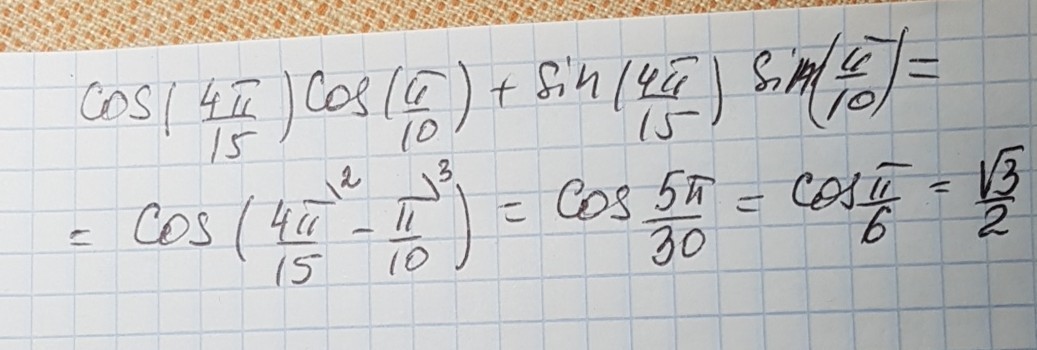 cos(4π/15)cos(π/10) + sin(4π/15) sin(π/10) =
= cos(4π/15^2 - π/10^3) = cos 5π/30 = cos π/6 = √3/2